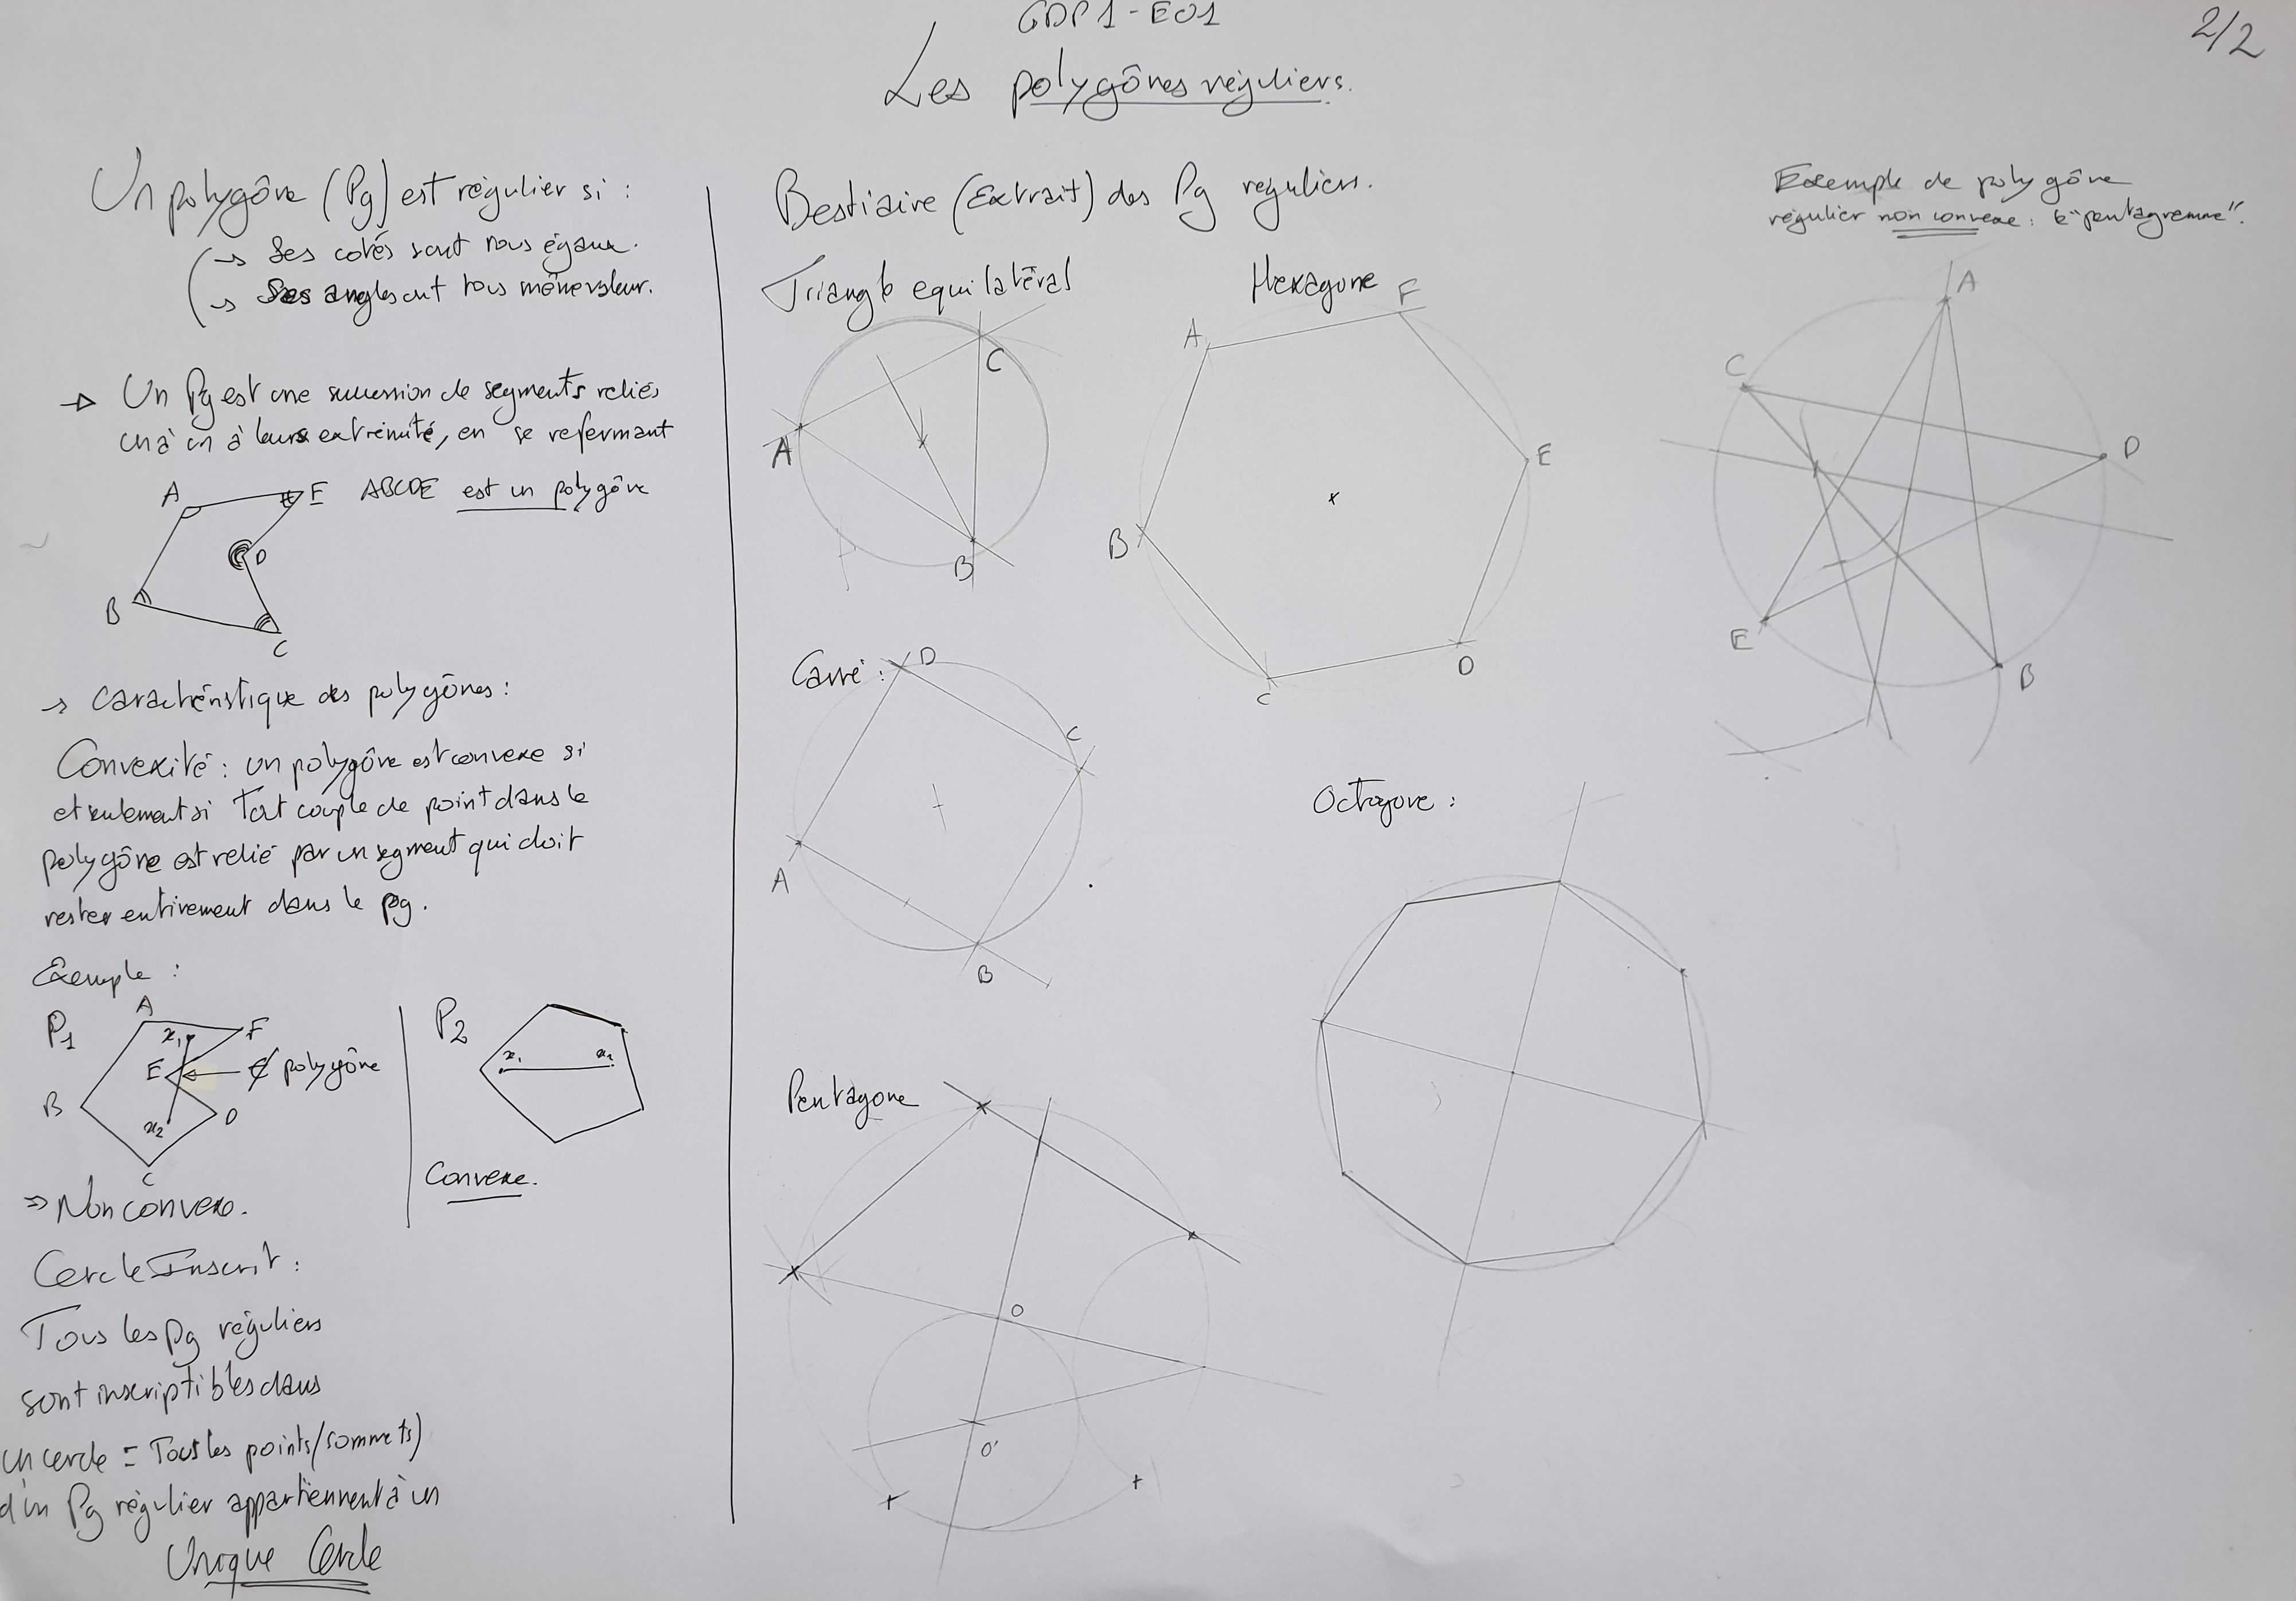 GDP1-E01
2/2
Les polygônes réguliers.
Un polygône (Pg) est régulier si :
→ Ses cotés sont tous égaux.
→ Ses angles ont tous même valeur.
→ Un Pg est une succession de segments reliés
un à un à leurs extrémité, en se refermant
A E ABCDE est un polygône
D
B
C
→ Caractéristique des polygônes :
Convexité : un polygône est convexe si
et seulement si Tout couple de point dans le
polygône est relié par un segment qui doit
rester entirement dans le pg.
Exemple :
P1 A F
x1
E ∉ polygône
B D
x2
C
⇒ Non convexe.
P2
x1 x2
Convexe.
Cercle Inscrit :
Tous les pg réguliers
sont inscriptibles dans
un cercle = Tous les points (sommets)
d'un Pg régulier appartiennent à un
Unique Cercle
Bestiaire (Extrait) des Pg reguliers.
Triangle equilatéral
C
A
B
Hexagone
F
A
E
B
D
C
Carré :
D
C
A
B
Pentagone
O
O'
Octogone :
Exemple de polygône
régulier non convexe : le "pentagramme".
A
C
D
E
B